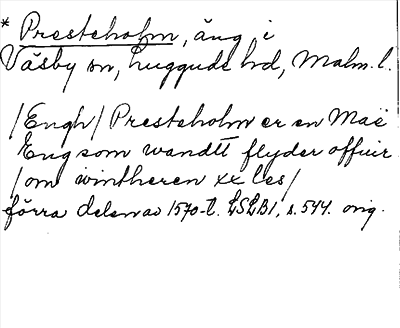 * Presteholm, äng i
Väsby sn, Luggude hd, Malm. l.
/Engh/ Presteholm er en Maë
Eng som wandtt flyder offuir
/om wintheren xx les/
förra delen av 1570-t. LSLB1, s. 544. orig.